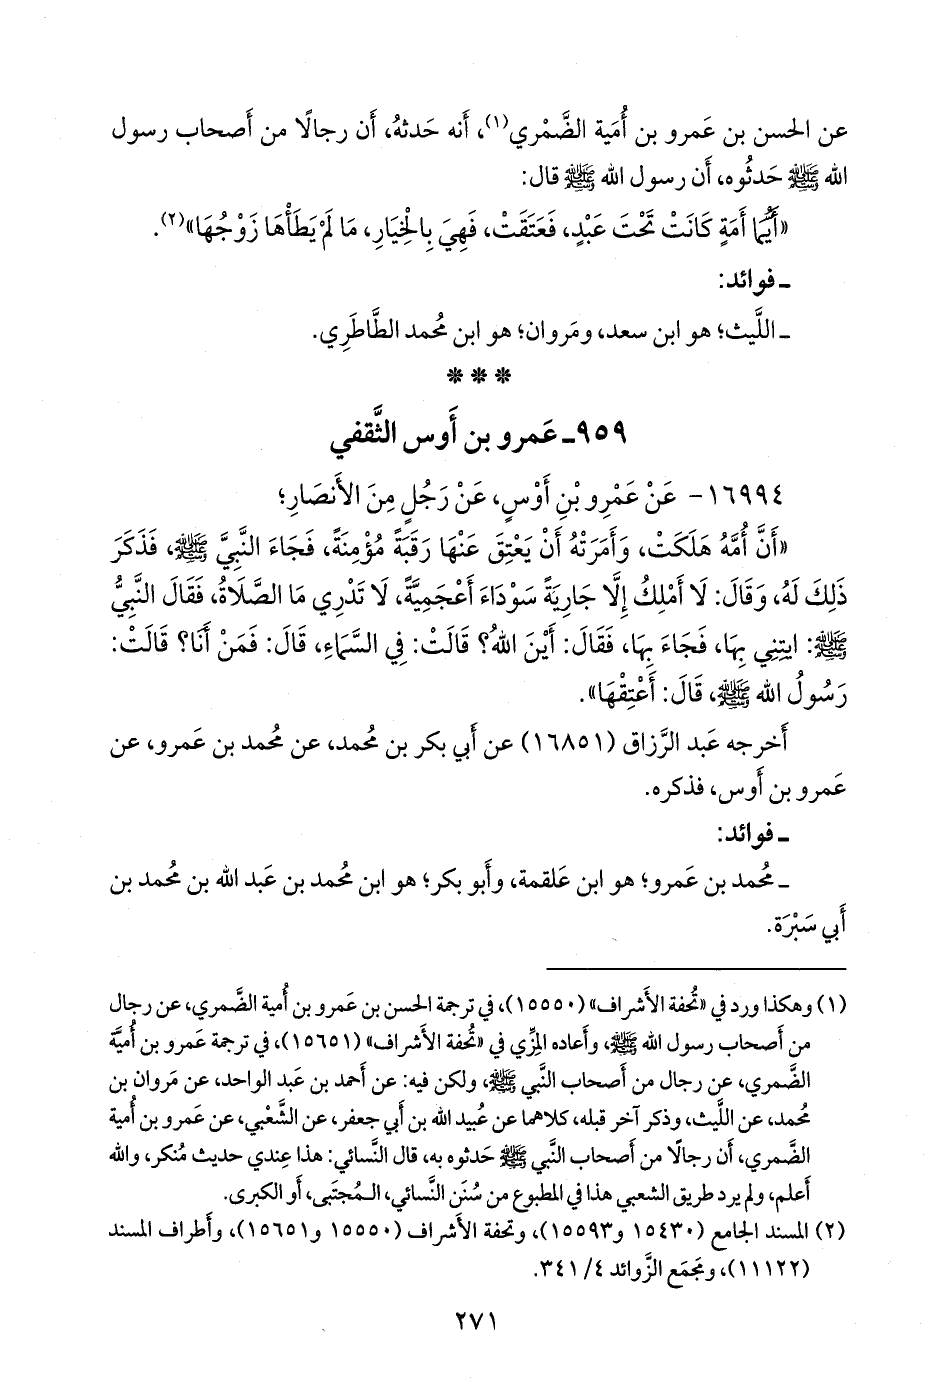 عن الحسن بن عَمرو بن أُمَية الضَّمْري(١)، أَنه حَدثهُ، أَن رجالًا من أَصحاب رسول
الله ﷺ حَدثُوه، أَن رسول الله ﷺ قال:
«أَيُّمَا أَمَةٍ كَانَتْ تَحْتَ عَبْدٍ، فَعَتَقَتْ، فَهِيَ بِالْخِيَارِ، مَا لَمْ يَطَأْهَا زَوْجُهَا»(٢).
ـ فوائد:
ـ اللَّيث؛ هو ابن سعد، ومَروان؛ هو ابن مُحمد الطَّاطَرِي.
* * *
٩٥٩ـ عَمرو بن أَوس الثَّقفي
١٦٩٩٤- عَنْ عَمْرِو بْنِ أَوْسٍ، عَنْ رَجُلٍ مِنَ الأَنصَارِ؛
«أَنَّ أُمَّهُ هَلَكَتْ، وَأَمَرَتْهُ أَنْ يَعْتِقَ عَنْهَا رَقَبَةً مُؤْمِنَةً، فَجَاءَ النَّبِيَّ ﷺ، فَذَكَرَ
ذَلِكَ لَهُ، وَقَالَ: لَا أَمْلِكُ إِلَّا جَارِيَةً سَوْدَاءَ أَعْجَمِيَّةً، لَا تَدْرِي مَا الصَّلَاةُ، فَقَالَ النَّبِيُّ
ﷺ: ايتِنِي بِهَا، فَجَاءَ بِهَا، فَقَالَ: أَيْنَ اللهُ؟ قَالَتْ: فِي السَّمَاءِ، قَالَ: فَمَنْ أَنَا؟ قَالَتْ:
رَسُولُ الله ﷺ، قَالَ: أَعْتِقْهَا».
أَخرجه عَبد الرَّزاق (١٦٨٥١) عن أَبي بكر بن مُحمد، عن مُحمد بن عَمرو، عن
عَمرو بن أَوس، فذكره.
ـ فوائد:
ـ مُحمد بن عَمرو؛ هو ابن عَلقمة، وأَبو بكر؛ هو ابن مُحمد بن عَبد الله بن مُحمد بن
أَبي سَبْرَة.
(١) وهكذا ورد في «تُحفة الأَشراف» (١٥٥٥٠)، في ترجمة الحسن بن عَمرو بن أُمية الضَّمري، عن رجال
من أَصحاب رسول الله ﷺ، وأَعاده المِزِّي في «تُحفة الأَشراف» (١٥٦٥١)، في ترجمة عَمرو بن أُميَّة
الضَّمري، عن رجال من أَصحاب النَّبي ﷺ، ولكن فيه: عن أَحمد بن عَبد الواحد، عن مَروان بن
مُحمد، عن اللَّيث، وذكر آخر قبله، كلاهما عن عُبيد الله بن أَبي جعفر، عن الشَّعْبي، عن عَمرو بن أُمية
الضَّمري، أَن رجالًا من أَصحاب النَّبي ﷺ حَدثوه به، قال النَّسائي: هذا عِندي حديث مُنكر، والله
أَعلم، ولم يرد طريق الشعبي هذا في المطبوع من سُنَن النَّسائي، المُجتَبى، أَو الكبرى.
(٢) المسند الجامع (١٥٤٣٠ و١٥٥٩٣)، وتحفة الأشراف (١٥٥٥٠ و١٥٦٥١)، وأَطراف المسند
(١١١٢٢)، ومَجمَع الزَّوائد ٤/ ٣٤١.
٢٧١